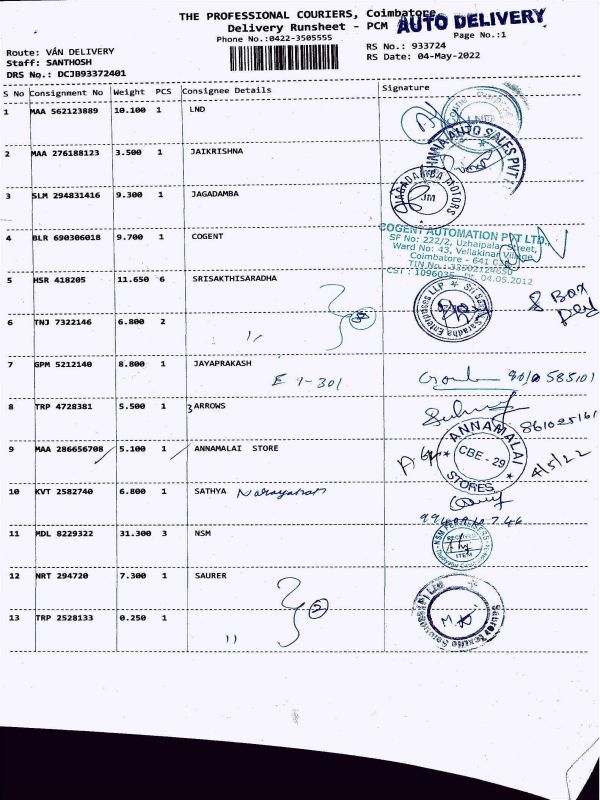 THE PROFESSIONAL COURIERS, Coimbatore
Delivery Runsheet - PCM AUTO DELIVERY
Phone No.:0422-3505555 Page No.:1
Route: VÁN DELIVERY RS No.: 933724
Staff: SANTHOSH RS Date: 04-May-2022
DRS No.: DCJB93372401
S No Consignment No Weight PCS Consignee Details Signature
1 MAA 562123889 10.100 1 LND
LND
2 MAA 276188123 3.500 1 JAIKRISHNA
AUTO SALES PVT
3 SLM 294831416 9.300 1 JAGADAMBA
JAGADAMBA MOTORS
JM
4 BLR 690306018 9.700 1 COGENT
COGENT AUTOMATION PVT LTD.,
SF No: 222/2, Uzhaipalar Street,
Ward No: 43, Vellakinar Village
Coimbatore - 641
TIN No.: 33502124650
CST : 1096035 04.05.2012
5 HSR 418205 11.650 6 SRISAKTHISARADHA
Sri Sakthi Saradha Enterprises LLP
8 Box
6 TNJ 7322146 6.800 2
8
7 GPM 5212140 8.800 1 JAYAPRAKASH
E 4-301
8 TRP 4728381 5.500 1 3 ARROWS
9 MAA 286656708 5.100 1 ANNAMALAI STORE
ANNAMALAI STORES
CBE - 29
4/5/22
10 KVT 2582740 6.800 1 SATHYA Narayanan
11 MDL 8229322 31.300 3 NSM
NSM
RECEIVED
ITEM
12 NRT 294720 7.300 1 SAURER
2
13 TRP 2528133 0.250 1